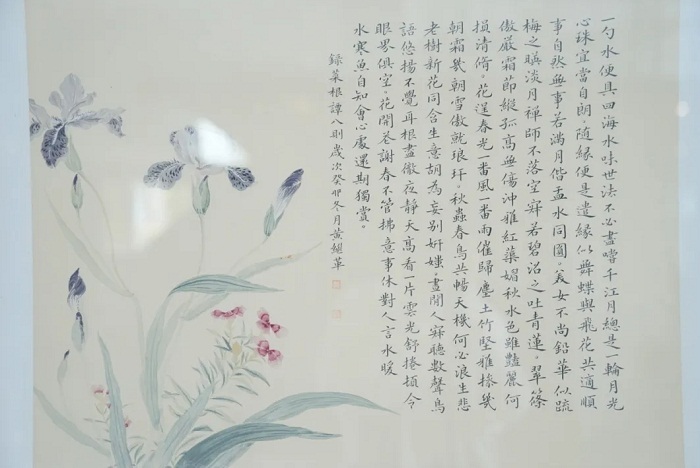 一勺水便具四海水味世法不必盡嚐千江月總是一輪月光
心珠宜當自朗隨緣便是遣緣似舞蝶與飛花共適順
事自然無事若滿月偕盂水同圓。美女不尚鉛華似疏
梅之暎淡月禪師不落空寂若碧沼之吐青蓮。翠篠
傲嚴霜節縱孤高無傷沖雅紅蕖媚秋水色雖豔麗何
損清脩。花逞春光一番風一番雨催歸塵土竹堅雅操幾
朝霜幾朝雪傲就琅玕。秋蟲春鳥共暢天機何必浪生悲
老樹新花同含生意胡為妄別妍媸。晝閒人寂聽數聲鳥
語悠揚不覺耳根盡徹夜靜天高看一片雲光舒捲頓令
眼界俱空。花開花謝春不管拂意事休對人言水暖
水寒魚自知會心處還期獨賞。
錄菜根譚八則歲次癸卯冬月黃繼華